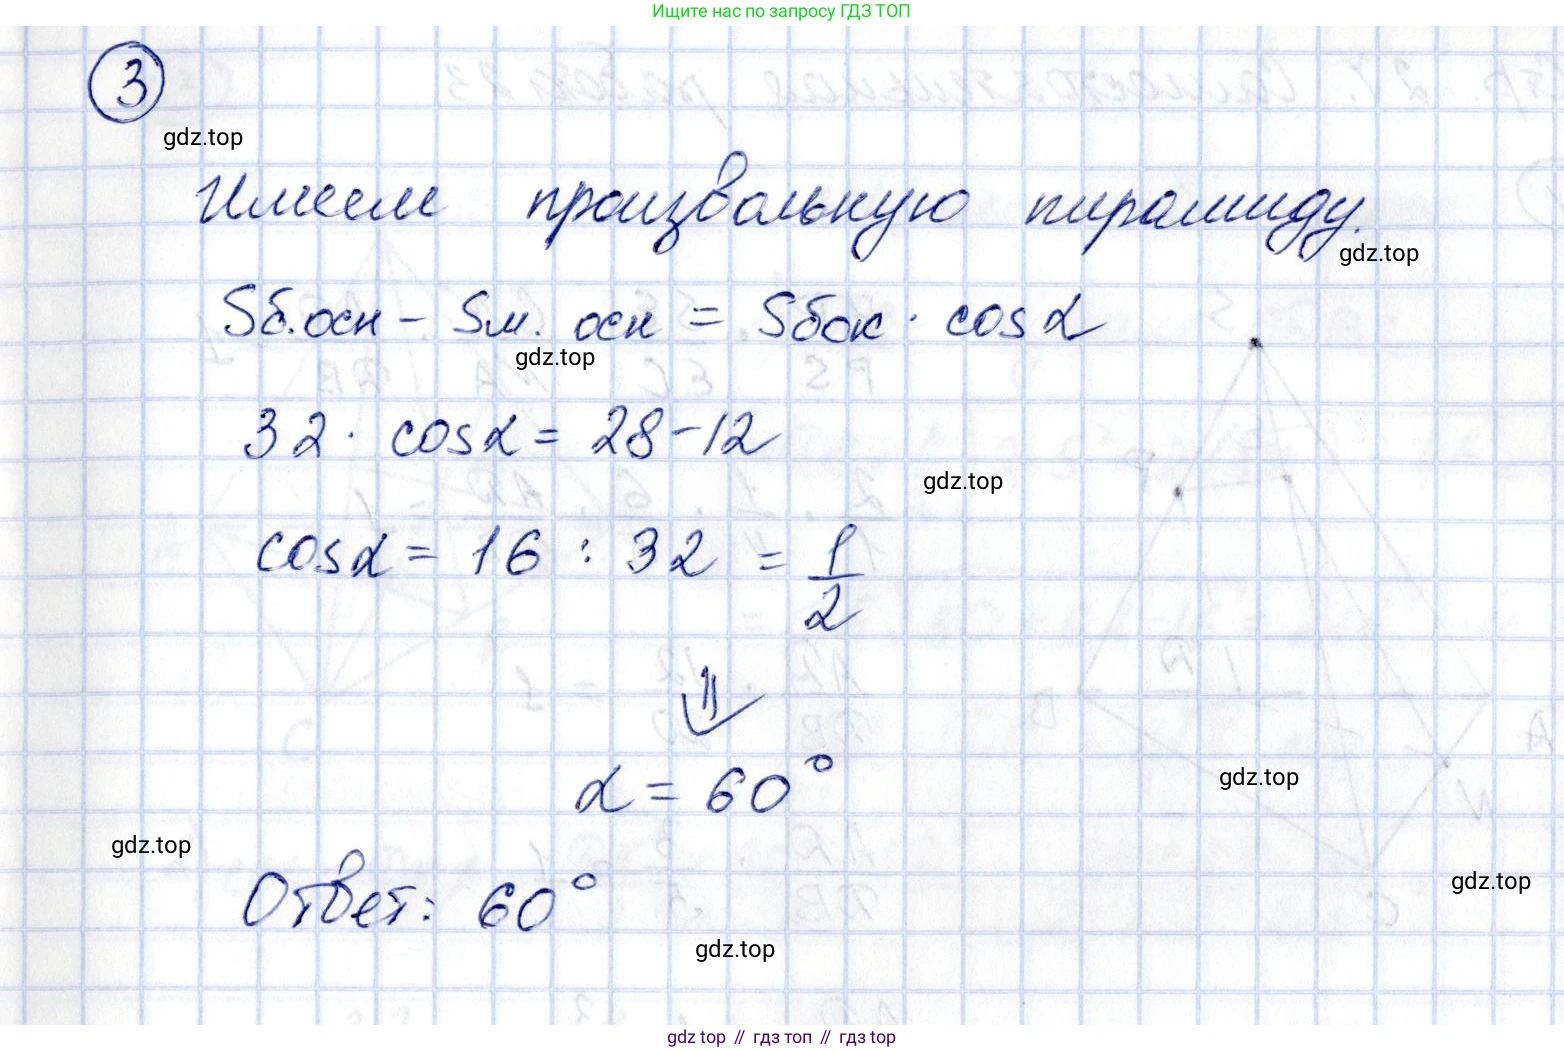 Ищите нас по запросу ГДЗ ТОП
3
gdz.top
Имеем произвольную пирамиду.
gdz.top
Sб.осн - Sм. осн = Sбок · cos α
gdz.top
32 · cos α = 28 - 12
gdz.top
cos α = 16 : 32 = 1/2
⇓
α = 60°
gdz.top
gdz.top
Ответ: 60°
gdz.top
gdz.top
gdz top // гдз топ // гдз top